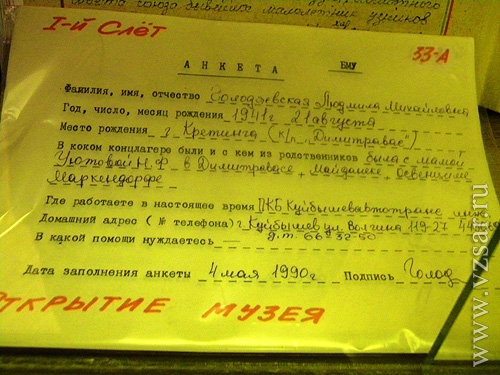 совета союза бывших малолетних узников
I-й Слёт
33-А
АНКЕТА БМУ
Фамилия, имя, отчество Голодяевская Людмила Михайловна
Год, число, месяц рождения 1941 г 21 августа
Место рождения г Кретинга (к/л "Димитравас")
В каком концлагере были и с кем из родственников была с мамой
Уютовой Н Ф в Димитравасе, Майданеке, Освенциме
Маркендорфе
Где работаете в настоящее время ПКБ Куйбышевавтотранс инж
Домашний адрес (№ телефона) г Куйбышев ул. Волгина 119-27
В какой помощи нуждаетесь д.т. 66-32-50
Дата заполнения анкеты 4 мая 1990 г Подпись Голод
ОТКРЫТИЕ МУЗЕЯ
www.vzsar.ru